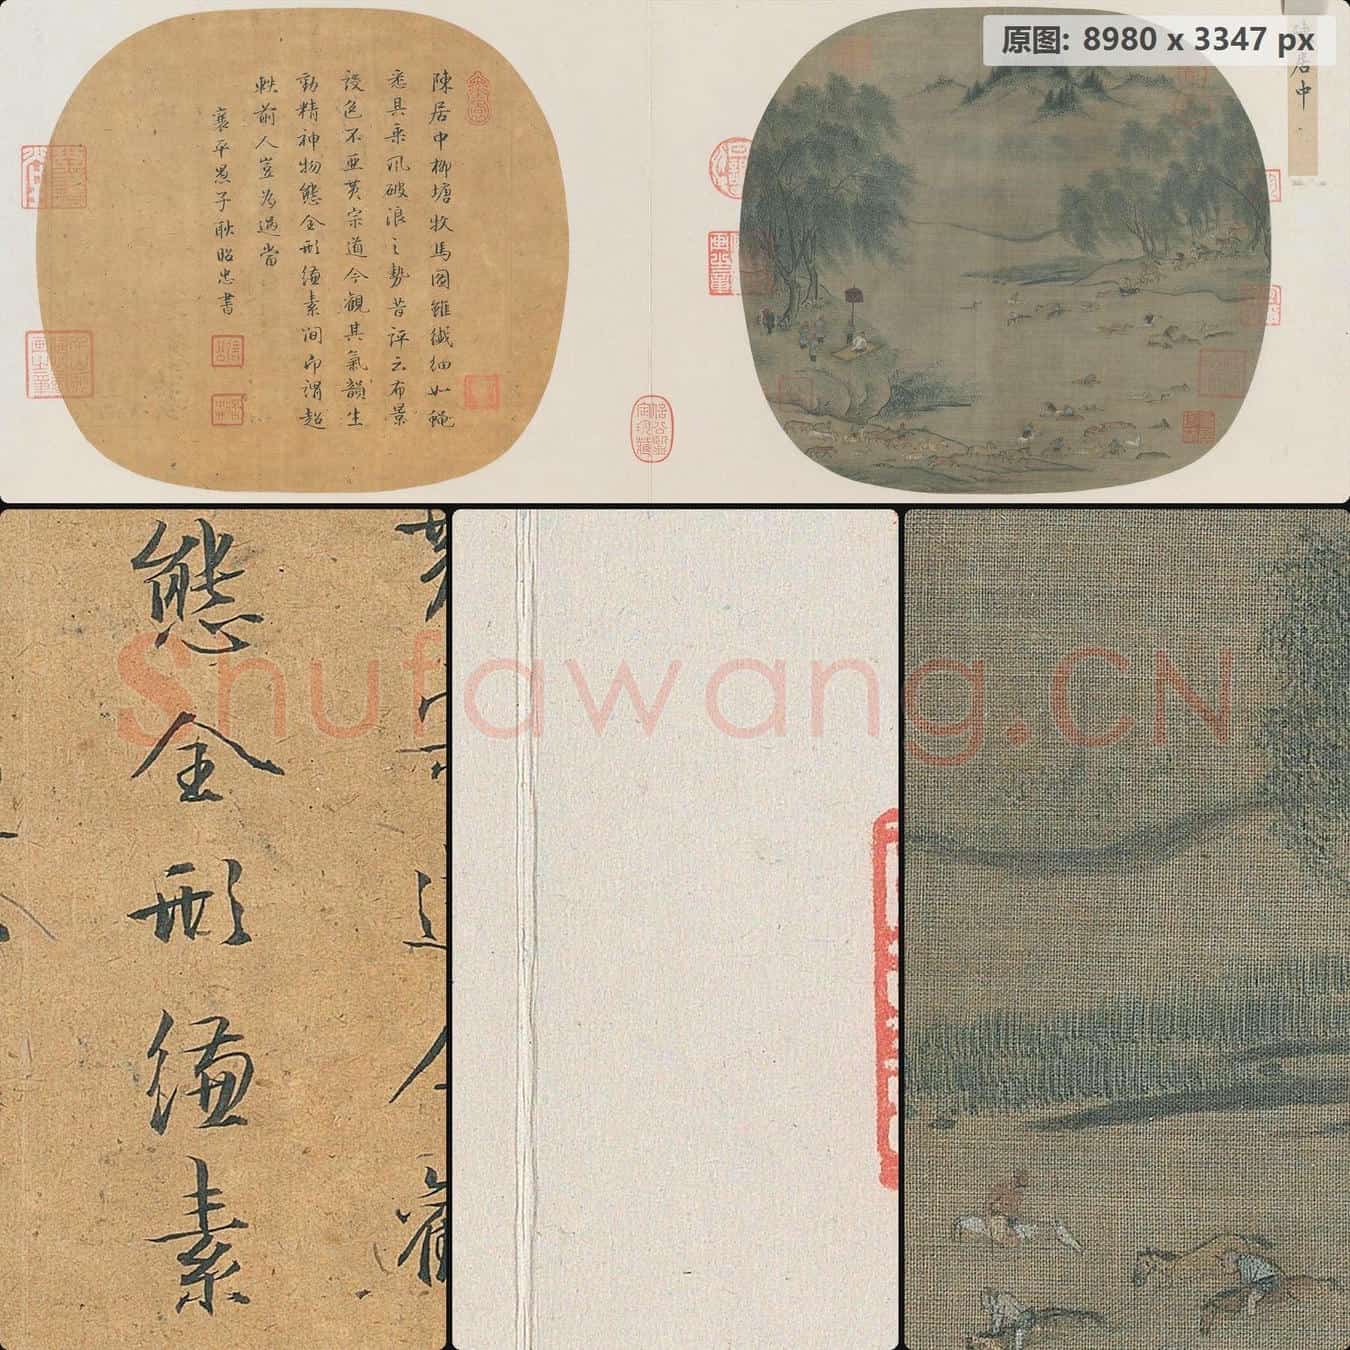 原图: 8980 x 3347 px
陳居中
陳居中柳塘牧馬圖雖纖細如蠅
悉具乘風破浪之勢昔評云布景
設色不亞黄宗道今觀其氣韻生
動精神物態全形縑素間即謂超
軼前人豈為過當
襄平愚子耿昭忠書
態全形縑素
Shufawang.CN